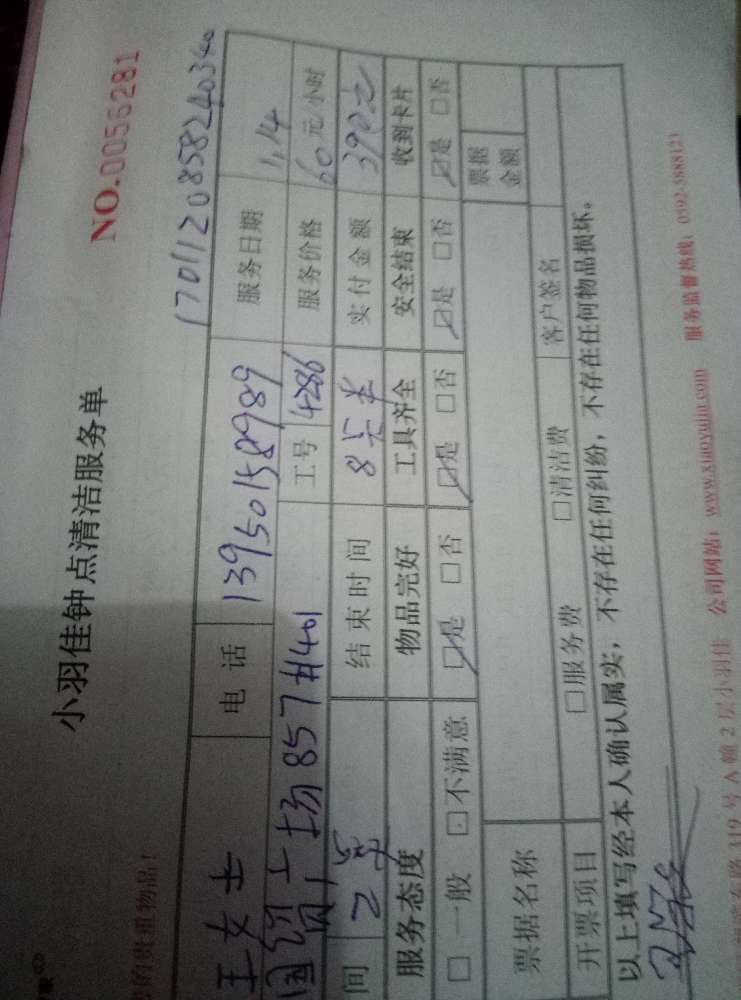 小羽佳钟点清洁服务单
NO.0056281
的贵重物品！
170112085824034
王女士 电话 13950158989 服务日期 1.14
广场857#401 工号 4286 服务价格 60元/小时
间 2 结束时间 8点半 实付金额 390元
服务态度 物品完好 工具齐全 安全结束 收到卡片
□一般 □不满意 ☑是 □否 ☑是 □否 ☑是 □否 ☑是 □否
票据名称 票据金额
开票项目 □服务费 □清洁费 客户签名
以上填写经本人确认属实，不存在任何纠纷，不存在任何物品损坏。
路319号A幢2层小羽佳 公司网站：www.xiaoyujia.com 服务监督热线：0592-5888121